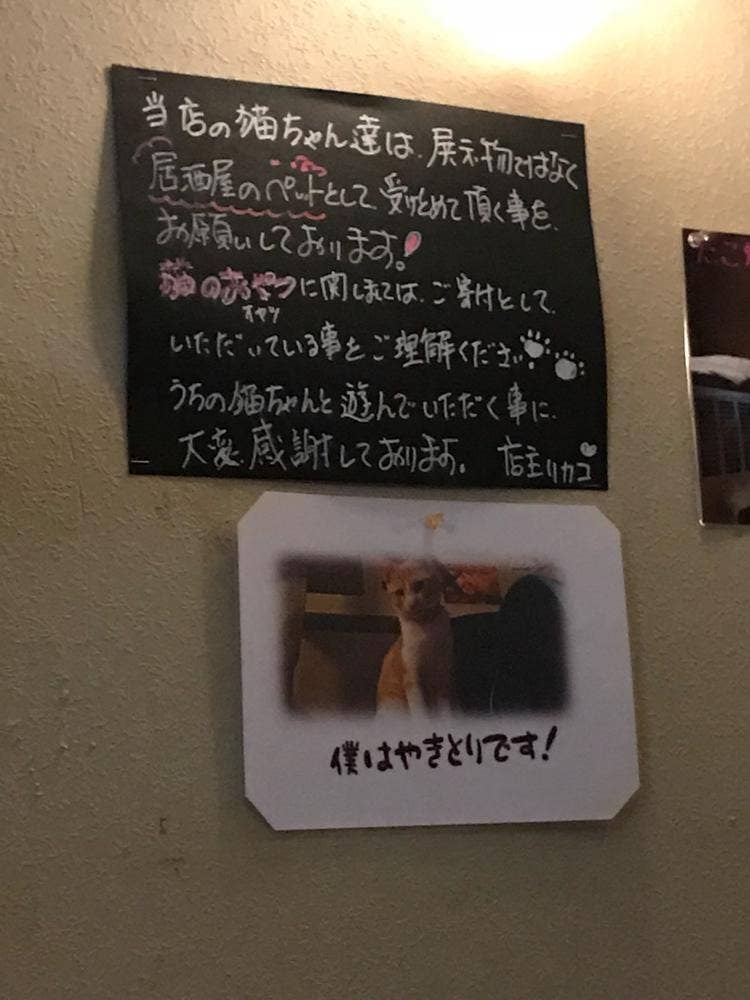 当店の猫ちゃん達は、展示物ではなく
居酒屋のペットとして、受けとめて頂く事を、
お願いしております!
猫のおやつに関しましては、ご寄付として、
オヤツ
いただいている事をご理解ください
うちの猫ちゃんと遊んでいただく事に、
大変、感謝しております。 店主リカコ
僕はやきとりです!